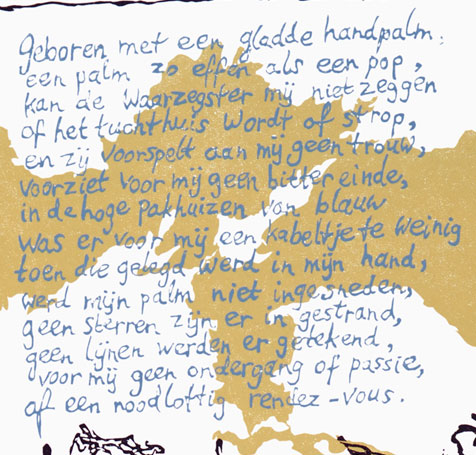 geboren met een gladde handpalm:
een palm zo effen als een pop,
kan de waarzegster mij niet zeggen
of het tuchthuis wordt of strop,
en zij voorspelt aan mij geen trouw,
voorziet voor mij geen bitter einde,
in de hoge pakhuizen van blauw
was er voor mij een kabeltje te weinig
toen die gelegd werd in mijn hand,
werd mijn palm niet ingesneden,
geen sterren zijn er in gestrand,
geen lijnen werden er getekend,
voor mij geen ondergang of passie,
of een noodlottig rendez-vous.